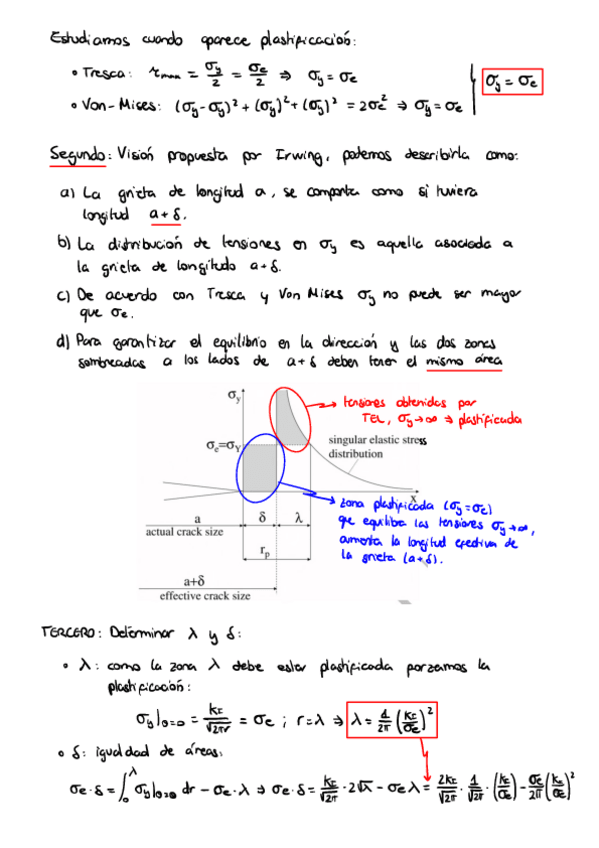 Estudiamos cuando aparece plastificación:
• Tresca: τmax = σy/2 = σe/2 ⇒ σy = σe
• Von-Mises: (σy-σy)² + (σy)² + (σy)² = 2σe² ⇒ σy = σe
σy = σe
Segundo: Visión propuesta por Irwing, podemos describirla como:
a) La grieta de longitud a, se comporta como si tuviera
longitud a+δ.
b) La distribución de tensiones en σy es aquella asociada a
la grieta de longitudo a+δ.
c) De acuerdo con Tresca y Von Mises σy no puede ser mayor
que σe.
d) Para garantizar el equilibrio en la dirección y las dos zonas
sombreadas a los lados de a+δ deben tener el mismo área
σy
→ tensiones obtenidas por
TEL, σy→∞ ⇒ plastificada
singular elastic stress
distribution
σe=σY
x
→ zona plastificada (σy=σe)
que equilibra las tensiones σy→∞,
aumenta la longitud efectiva de
la grieta (a+δ).
a δ λ
actual crack size
rp
a+δ
effective crack size
TERCERO: Determinar λ y δ:
• λ: como la zona λ debe estar plastificada forzamos la
plastificación:
σy|θ=0 = KI/√2πr = σe ; r=λ ⇒ λ = 1/2π (KI/σe)²
• δ: igualdad de áreas:
σe·δ = ∫₀^λ σy|θ=0 dr - σe·λ ⇒ σe·δ = KI/√2π · 2√λ - σeλ = 2KI/√2π · 1/√2π · (KI/σe) - σe/2π (KI/σe)²